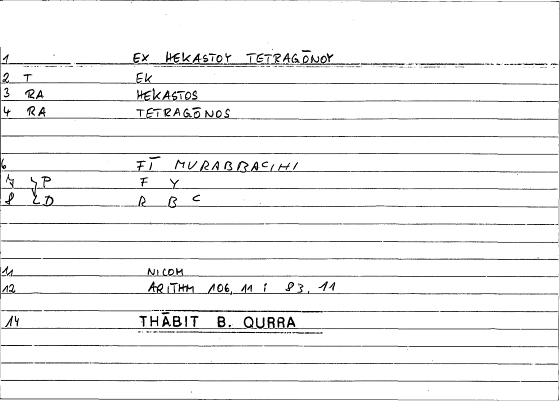 1 EX HEKASTOY TETRAGŌNOY
2 T EK
3 RA HEKASTOS
4 RA TETRAGŌNOS
6 FĪ MURABBAʿIHI
7 P F Y
8 D R B ʿ
11 NICOM
12 ARITHM 106, 11 : 83, 11
14 THĀBIT B. QURRA